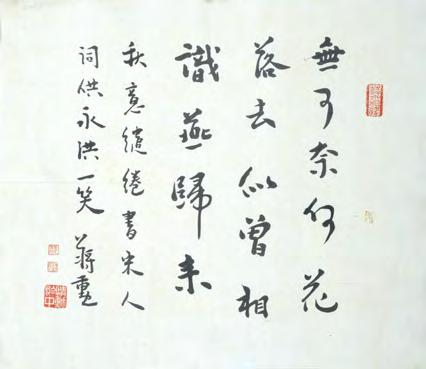 無可奈何花
落去似曾相
識燕歸來
秋意繾綣書宋人
詞供永洪一笑 蔣勳